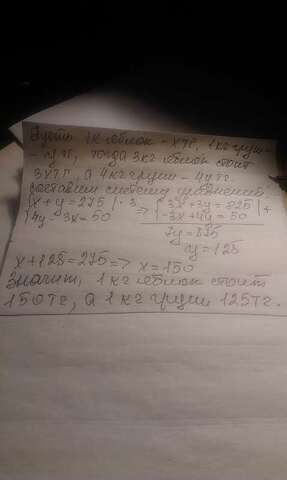 Пусть 1кг яблок - x тг, 1 кг груш -
- y тг, тогда 3кг яблок стоит
3x тг, а 4 кг груш - 4y тг.
Составим систему уравнений:
{x + y = 275 | · 3 => {3x + 3y = 825 | +
{4y - 3x = 50 {-3x + 4y = 50
7y = 875
y = 125
x + 125 = 275 => x = 150
Значит, 1 кг яблок стоит
150тг, а 1 кг груш 125тг.